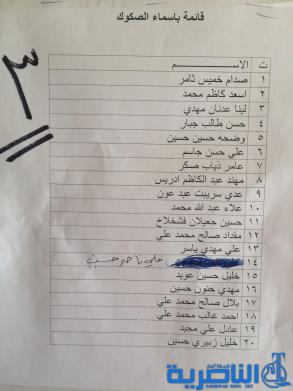 قائمة باسماء الصكوك
٣
ت الاســــم
١ صدام خميس ثامر
٢ اسعد كاظم محمد
٣ لينا عدنان مهدي
٤ حسن طالب جبار
٥ وضحه حسين حسين
٦ علي حسن جاسم
٧ عامر ذياب صكر
٨ مهند عبد الكاظم ادريس
٩ عدي سريبت عبد عون
١٠ علاء عبد الله محمد
١١ حسين جعيلان فشخلاخ
١٢ مقداد صالح محمد علي
١٣ علي مهدي ياسر
١٤ علي
١٥ خليل حسين عويد
١٦ مهدي حنون حسين
١٧ بلال صالح محمد علي
١٨ احمد غالب محمد علي
١٩ عادل علي مجيد
٢٠ خليل زبيري حسين
الناصرية